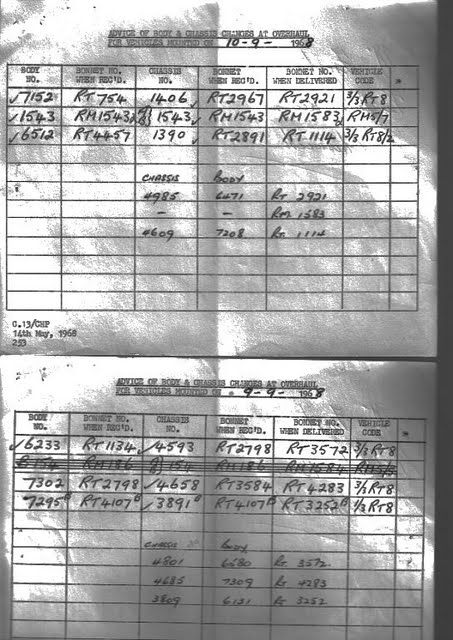 ADVICE OF BODY & CHASSIS CHANGES AT OVERHAUL
FOR VEHICLES MOUNTED ON 10-9- 1968
BODY NO. BONNET NO. WHEN REC'D. CHASSIS NO. BONNET WHEN REC'D. BONNET NO. WHEN DELIVERED VEHICLE CODE
✓7152 RT754 1406 ✓RT2967 RT2921 3/3 RT8
✓1543 RM1543 1543 RM1543 RM1583 RM5/7
✓6512 RT4457 1390 ✓RT2891 RT1114 3/3 RT8/2
CHASSIS BODY
4985 6471 RT 2921
– – RM 1583
4609 7208 RT 1114
G.13/CHP
14th May, 1968
253
ADVICE OF BODY & CHASSIS CHANGES AT OVERHAUL
FOR VEHICLES MOUNTED ON 9-9- 1968
BODY NO. BONNET NO. WHEN REC'D. CHASSIS NO. BONNET WHEN REC'D. BONNET NO. WHEN DELIVERED VEHICLE CODE
✓6233 RT1134 ✓4593 RT2798 RT3572 3/3 RT8
7302 RT2798 ✓4658 RT3584 RT4283 3/3 RT8
7295 RT4107 ✓3891 RT4107 RT3252 3/3 RT8
CHASSIS BODY
4801 6580 RT 3572
4685 7309 RT 4283
3809 6131 RT 3252